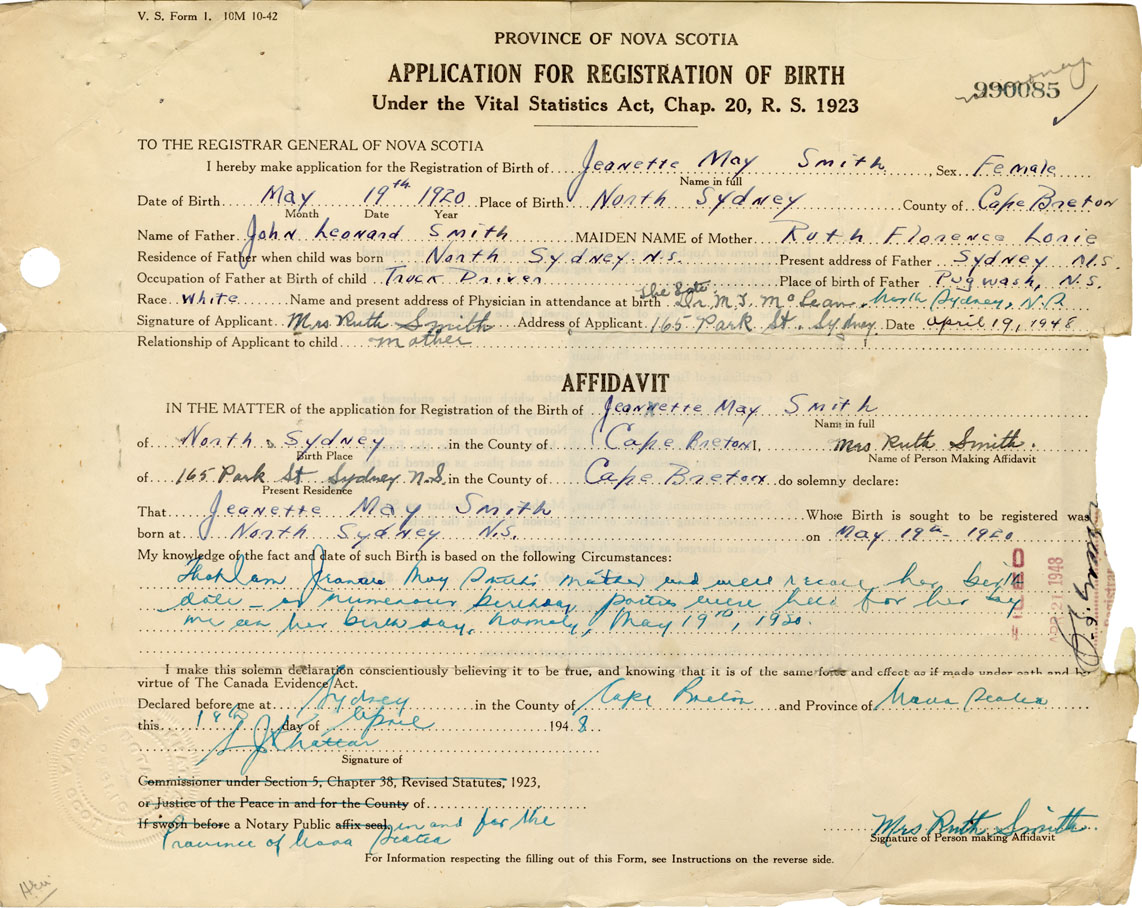 V. S. Form 1. 10M 10-42
PROVINCE OF NOVA SCOTIA
APPLICATION FOR REGISTRATION OF BIRTH
Under the Vital Statistics Act, Chap. 20, R. S. 1923
990085
TO THE REGISTRAR GENERAL OF NOVA SCOTIA
I hereby make application for the Registration of Birth of Jeanette May Smith, Sex Female
Name in full
Date of Birth May 19th 1920 Place of Birth North Sydney County of Cape Breton
Month Date Year
Name of Father John Leonard Smith MAIDEN NAME of Mother Ruth Florence Lorie
Residence of Father when child was born North Sydney N.S. Present address of Father Sydney N.S.
Occupation of Father at Birth of child Truck Driver Place of birth of Father Pugwash, N.S.
Race White Name and present address of Physician in attendance at birth The late Dr M. J. McLean, North Sydney, N.S.
Signature of Applicant Mrs Ruth Smith Address of Applicant 165 Park St. Sydney Date April 19, 1948
Relationship of Applicant to child mother
AFFIDAVIT
IN THE MATTER of the application for Registration of the Birth of Jeannette May Smith
Name in full
of North Sydney in the County of Cape Breton I, Mrs Ruth Smith.
Birth Place Name of Person Making Affidavit
of 165 Park St Sydney N.S. in the County of Cape Breton do solemny declare:
Present Residence
That Jeanette May Smith Whose Birth is sought to be registered was
born at North Sydney N.S. on May 19th 1920
My knowledge of the fact and date of such Birth is based on the following Circumstances:
That I am May Smith's mother and her birth
date - numerous birthday parties were held for her by
me on her birthday, namely, May 19th, 1920.
APR 21 1948
I make this solemn declaration conscientiously believing it to be true, and knowing that it is of the same force and effect as if made under oath and by
virtue of The Canada Evidence Act.
Declared before me at Sydney in the County of Cape Breton and Province of Nova Scotia
this 19th day of April 1948
Signature of
Commissioner under Section 5, Chapter 38, Revised Statutes, 1923,
or Justice of the Peace in and for the County of
If sworn before a Notary Public affix seal, in and for the
Province of Nova Scotia
Mrs Ruth Smith
Signature of Person making Affidavit
For Information respecting the filling out of this Form, see Instructions on the reverse side.